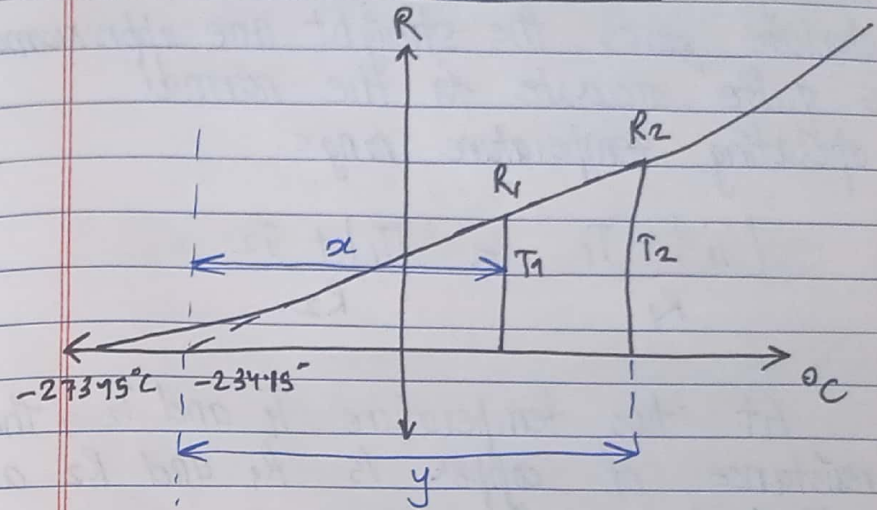 R
R2
R1
x
T1
T2
-273.15°C
-234.5°
°C
y